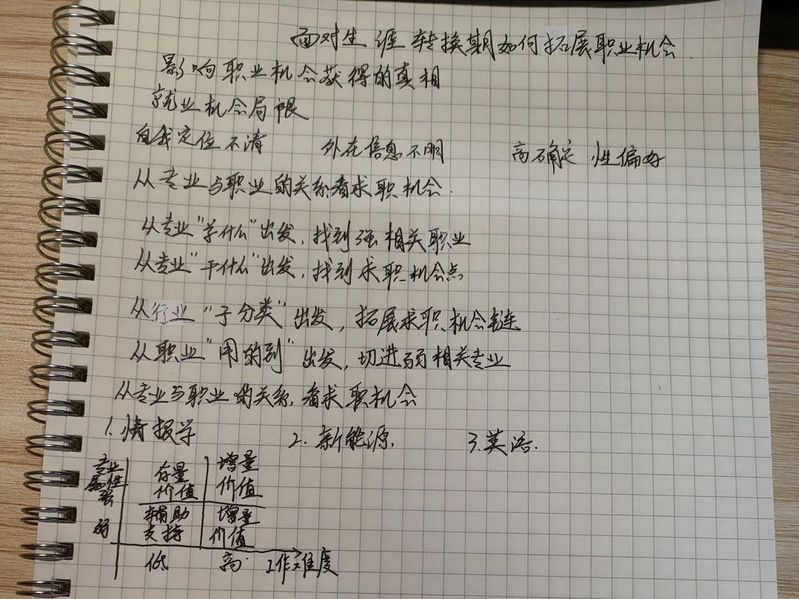 面对生涯转换期如何拓展职业机会.
影响职业机会获得的真相
就业机会局限
自我定位不清 外在信息不明 高确定性偏好
从专业与职业的关系看求职机会.
从专业"学什么"出发,找到强相关职业
从专业"干什么"出发,找到求职机会点
从行业"子分类"出发,拓展求职机会链
从职业"用的到"出发,切进弱相关专业
从专业与职业的关系,看求职机会
1.情报学 2.新能源. 3.英语.
专业属性强 存量价值 增量价值
弱 辅助支持 增量价值
低 高 工作难度